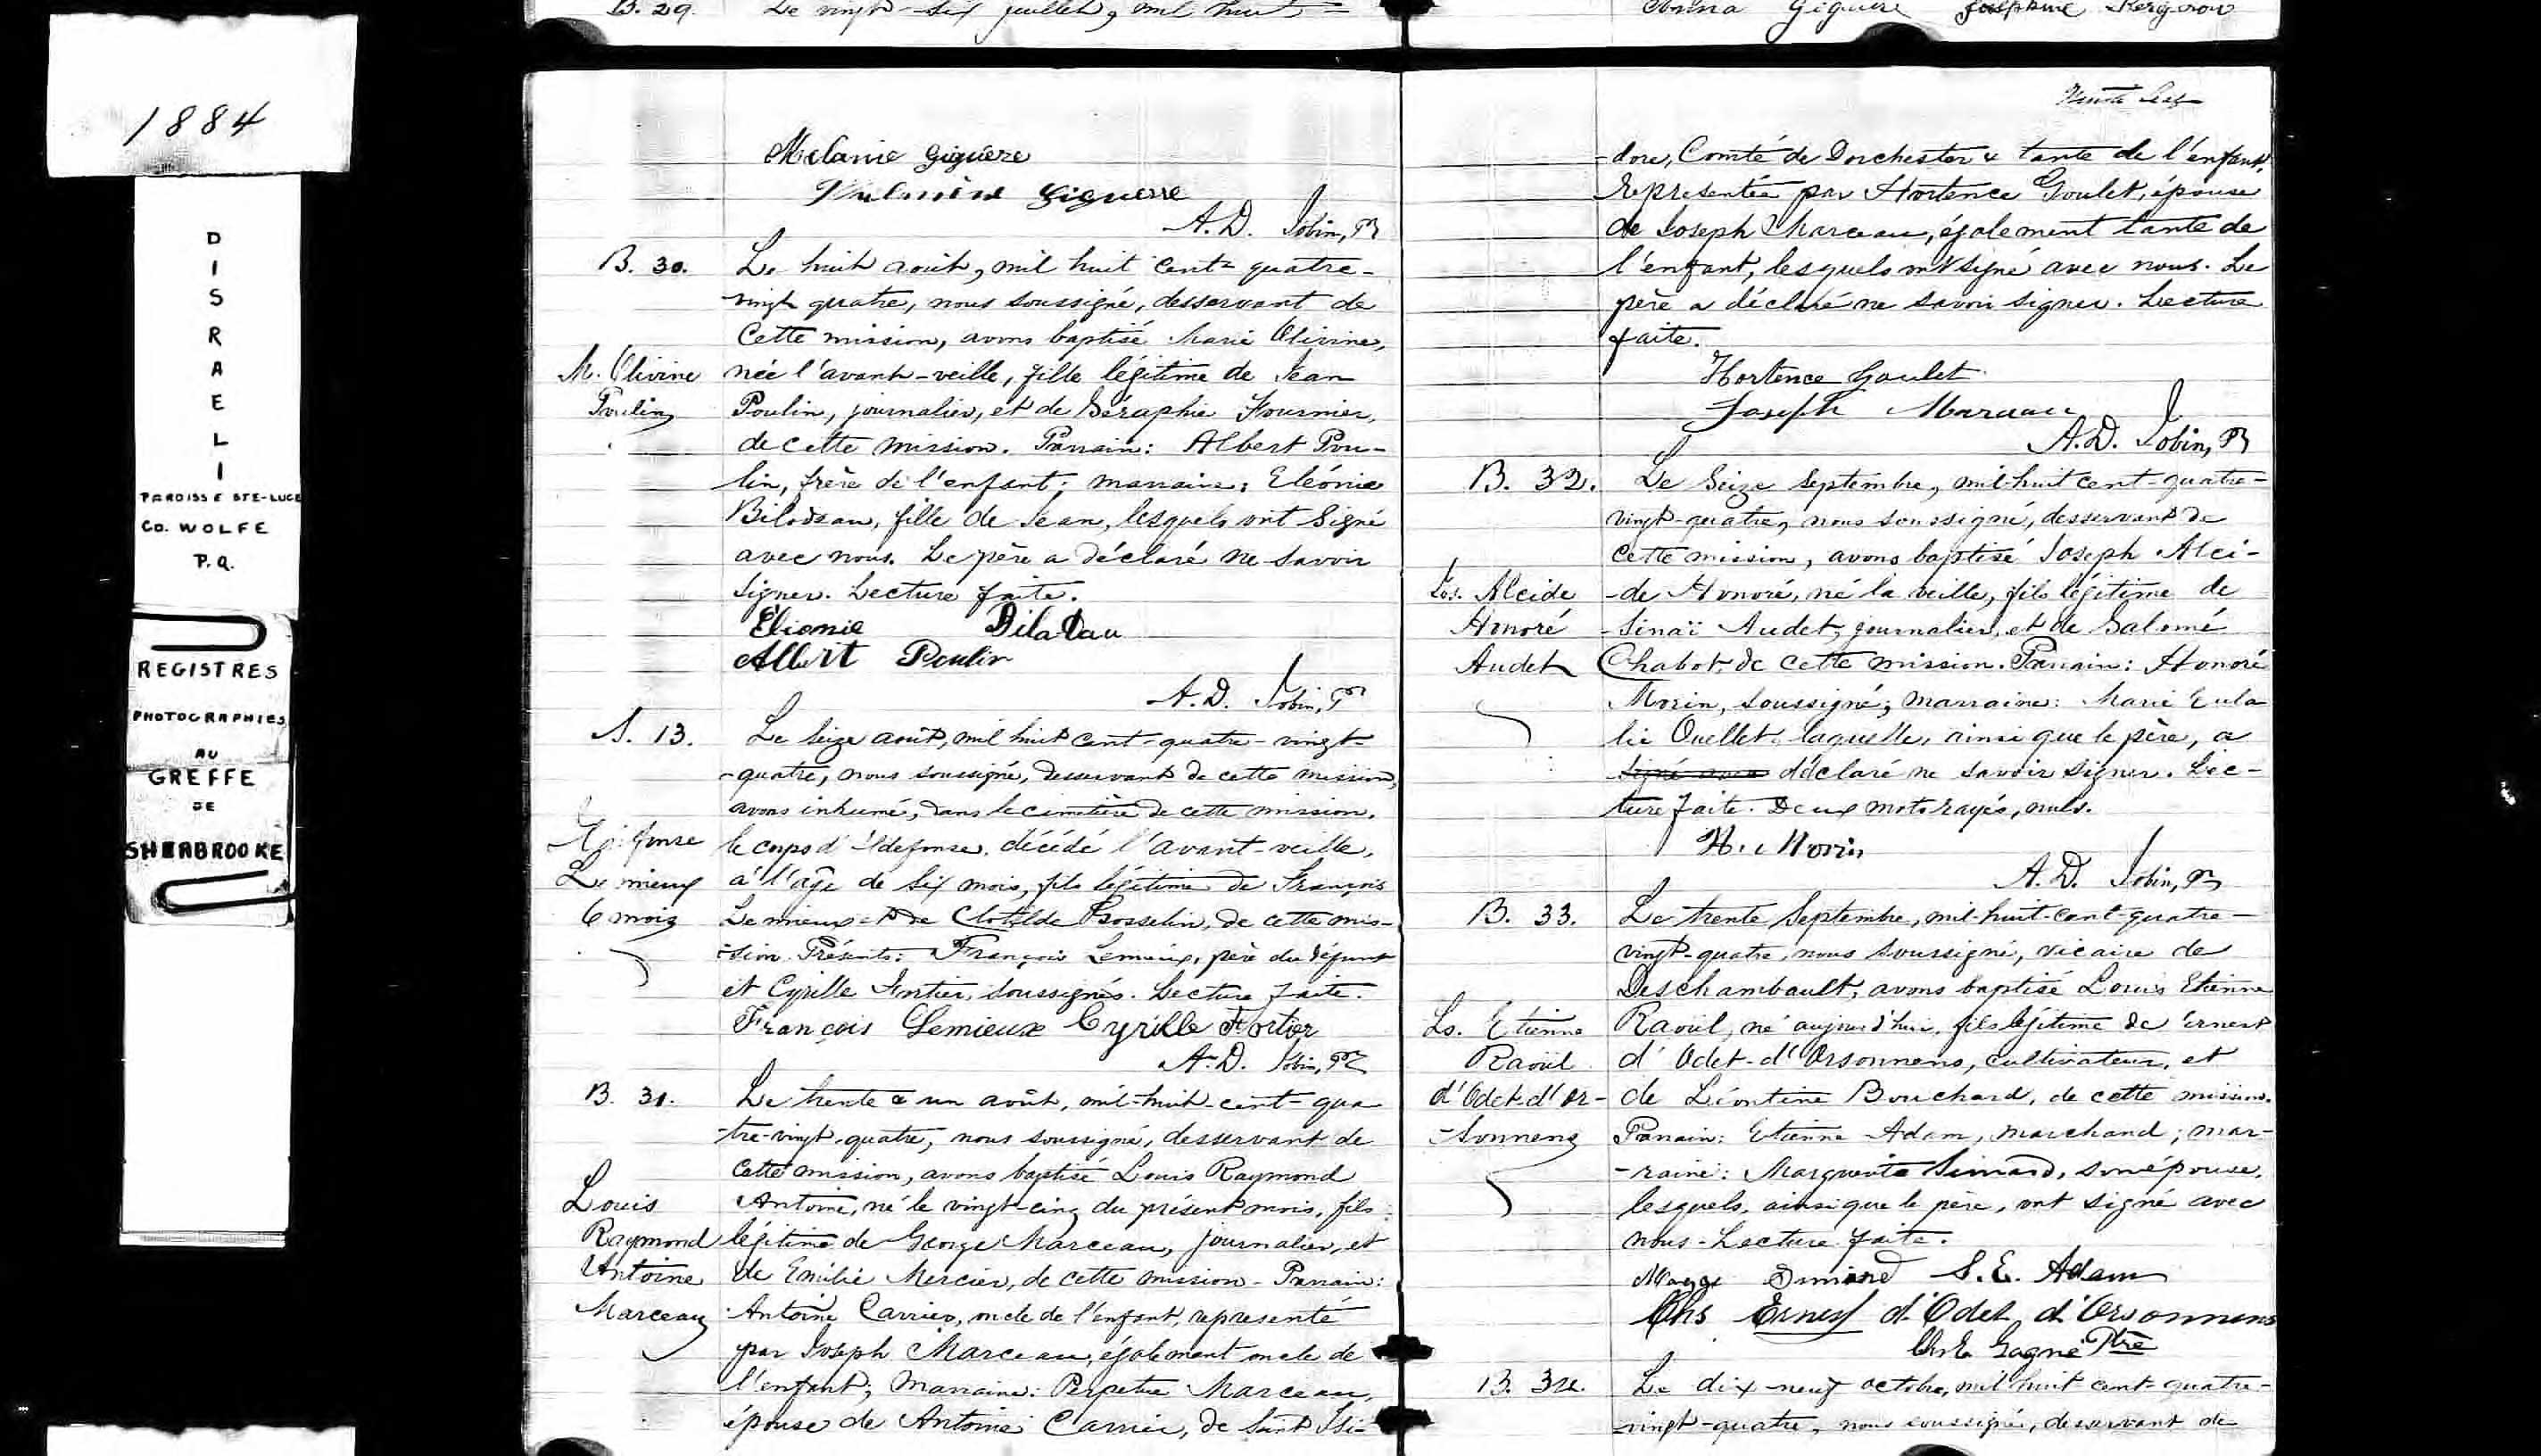 1884
DISRAELI
PAROISSE STE-LUCE
Co. WOLFE
P.Q.
REGISTRES
PHOTOGRAPHIES
AU
GREFFE
DE
SHERBROOKE
B. 29. Le vingt-six juillet, mil huit
Melanie Giguère
Giguere
A. D. Jobin, Ptr
B. 30. Le huit août, mil huit cent quatre-
vingt quatre, nous soussigné, desservant de
cette mission, avons baptisé Marie Olivine,
M. Olivine née l'avant-veille, fille légitime de Jean
Poulin Poulin, journalier, et de Séraphie Fournier,
de cette mission. Parrain: Albert Pou-
lin, frère de l'enfant; marraine: Eléonie
Bilodeau, fille de Jean, lesquels ont signé
avec nous. Le père a déclaré ne savoir
signer. Lecture faite.
Elionie Bilodau
Albert Poulin
A. D. Jobin, Ptr
S. 13. Le seize août, mil huit cent-quatre-vingt-
-quatre, nous soussigné, desservant de cette mission,
avons inhumé, dans le cimetière de cette mission,
le corps d'Ildefonse, décédé l'avant-veille,
Lemieux à l'âge de six mois, fils légitime de François
6 mois Lemieux et de Clotilde Gosselin, de cette mis-
-sion. Présents: François Lemieux, père du défunt
et Cyrille Fortier, soussignés. Lecture faite.
François Lemieux Cyrille Fortier
A. D. Jobin, Ptr
B. 31. Le trente & un août, mil-huit-cent-qua
-tre-vingt-quatre, nous soussigné, desservant de
cette mission, avons baptisé Louis Raymond
Louis Antoine, né le vingt-cinq du présent mois, fils
Raymond légitime de George Marceau, journalier, et
Antoine de Emilie Mercier, de cette mission - Parrain:
Marceau Antoine Carrier, oncle de l'enfant, représenté
par Joseph Marceau, également oncle de
l'enfant; marraine: Perpetue Marceau,
épouse de Antoine Carrier, de Saint Isi-
Giguere Josephine
-dore, Comté de Dorchester & tante de l'enfant,
représentée par Hortence Goulet, épouse
de Joseph Marceau, également tante de
l'enfant, lesquels ont signé avec nous. Le
père a déclaré ne savoir signer. Lecture
faite.
Hortence Goulet
Joseph Marceau
A. D. Jobin, Ptr
B. 32. Le seize septembre, mil-huit cent-quatre-
vingt-quatre, nous soussigné, desservant de
cette mission, avons baptisé Joseph Alci-
Jos. Alcide -de Honoré, né la veille, fils légitime de
Honoré Sinaï Audet, journalier, et de Salomé
Audet Chabot, de cette mission. Parrain: Honoré
Morin, soussigné; marraine: Marie Eula
lie Ouellet, laquelle, ainsi que le père, a
signé avec déclaré ne savoir signer. Lec-
ture faite. Deux mots rayés, nuls.
H. Morin
A. D. Jobin, Ptr
B. 33. Le trente septembre, mil-huit-cent-quatre-
vingt-quatre, nous soussigné, vicaire de
Deschambault, avons baptisé Louis Etienne
Ls. Etienne Raoül, né aujourd'hui, fils légitime de Ernest
Raoül d'Odet-d'Orsonnens, cultivateur, et
d'Odet-d'Or- de Léontine Bouchard, de cette mission.
-sonnens Parrain: Etienne Adam, marchand; mar-
-raine: Marguerite Simard, son épouse,
lesquels, ainsi que le père, ont signé avec
nous - Lecture faite.
Simard S. E. Adam
Chs Ernest d'Odet d'Orsonnens
Gagné Ptre
B. 34. Le dix-neuf octobre, mil huit cent-quatre-
vingt-quatre, nous soussigné, desservant de